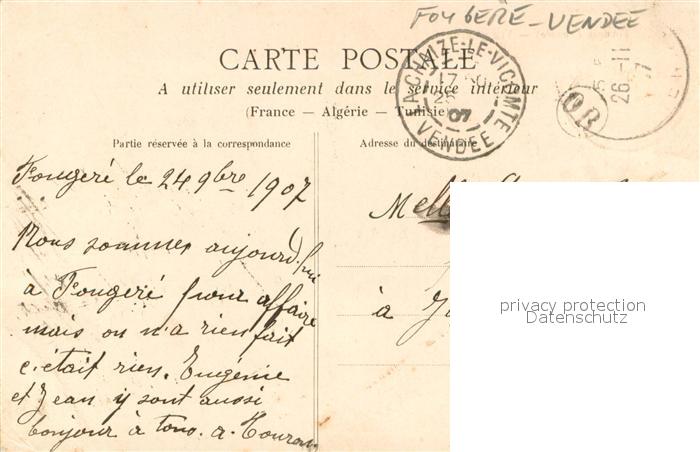 FOUGERE - VENDEE
CARTE POSTALE
A utiliser seulement dans le service intérieur
(France — Algérie — Tunisie)
LA CHAIZE-LE-VICOMTE
17
25
07
VENDÉE
26-11
7
OR
Partie réservée à la correspondance
Adresse du destinataire
Fougeré le 24 9bre 1907
Nous sommes aujourd'hui
à Fougeré pour affaire
mais on n'a rien fait
c'était rien. Eugénie
et Jean y sont aussi
bonjour à tous. a.
Melle
à
privacy protection
Datenschutz